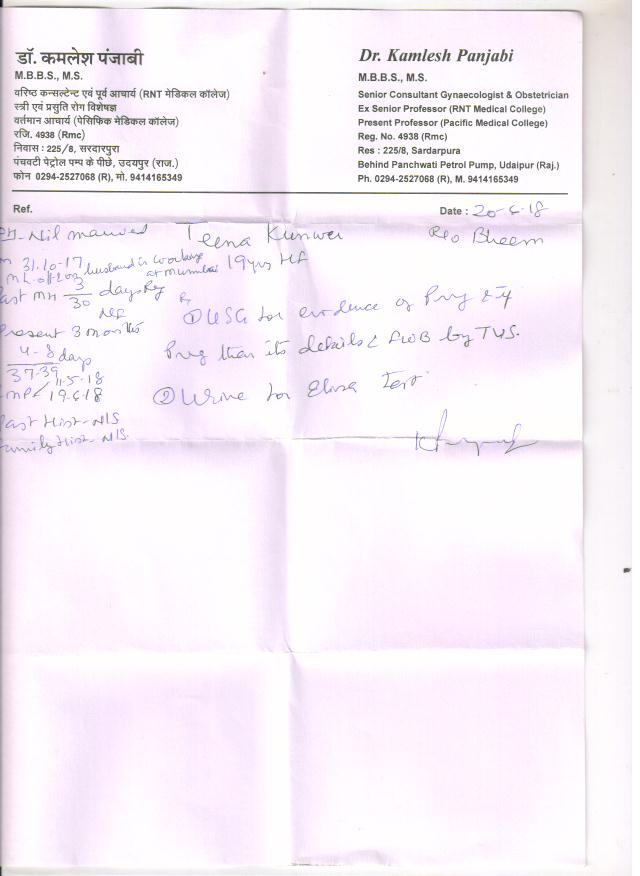 डॉ. कमलेश पंजाबी
M.B.B.S., M.S.
वरिष्ठ कन्सल्टेन्ट एवं पूर्व आचार्य (RNT मेडिकल कॉलेज)
स्त्री एवं प्रसुति रोग विशेषज्ञ
वर्तमान आचार्य (पेसिफिक मेडिकल कॉलेज)
रजि. 4938 (Rmc)
निवास : 225/8, सरदारपुरा
पंचवटी पेट्रोल पम्प के पीछे, उदयपुर (राज.)
फोन 0294-2527068 (R), मो. 9414165349
Dr. Kamlesh Panjabi
M.B.B.S., M.S.
Senior Consultant Gynaecologist & Obstetrician
Ex Senior Professor (RNT Medical College)
Present Professor (Pacific Medical College)
Reg. No. 4938 (Rmc)
Res : 225/8, Sardarpura
Behind Panchwati Petrol Pump, Udaipur (Raj.)
Ph. 0294-2527068 (R), M. 9414165349
Ref.
Date : 20-6-18
Nil married Teena Kunwer R/o Bheem
31.10-17 husband is working
at mumbai 19yrs HF
Past MH 3/30 days Reg
Present 3 months
4-8 days
37-39
11.5.18
19.6.18
Past Hist-NIS
Family Hist-NIS.
Rx
① USG for evidence of Prg & if
Prg then its details & FWB by TVS.
② Urine for Elisa Test